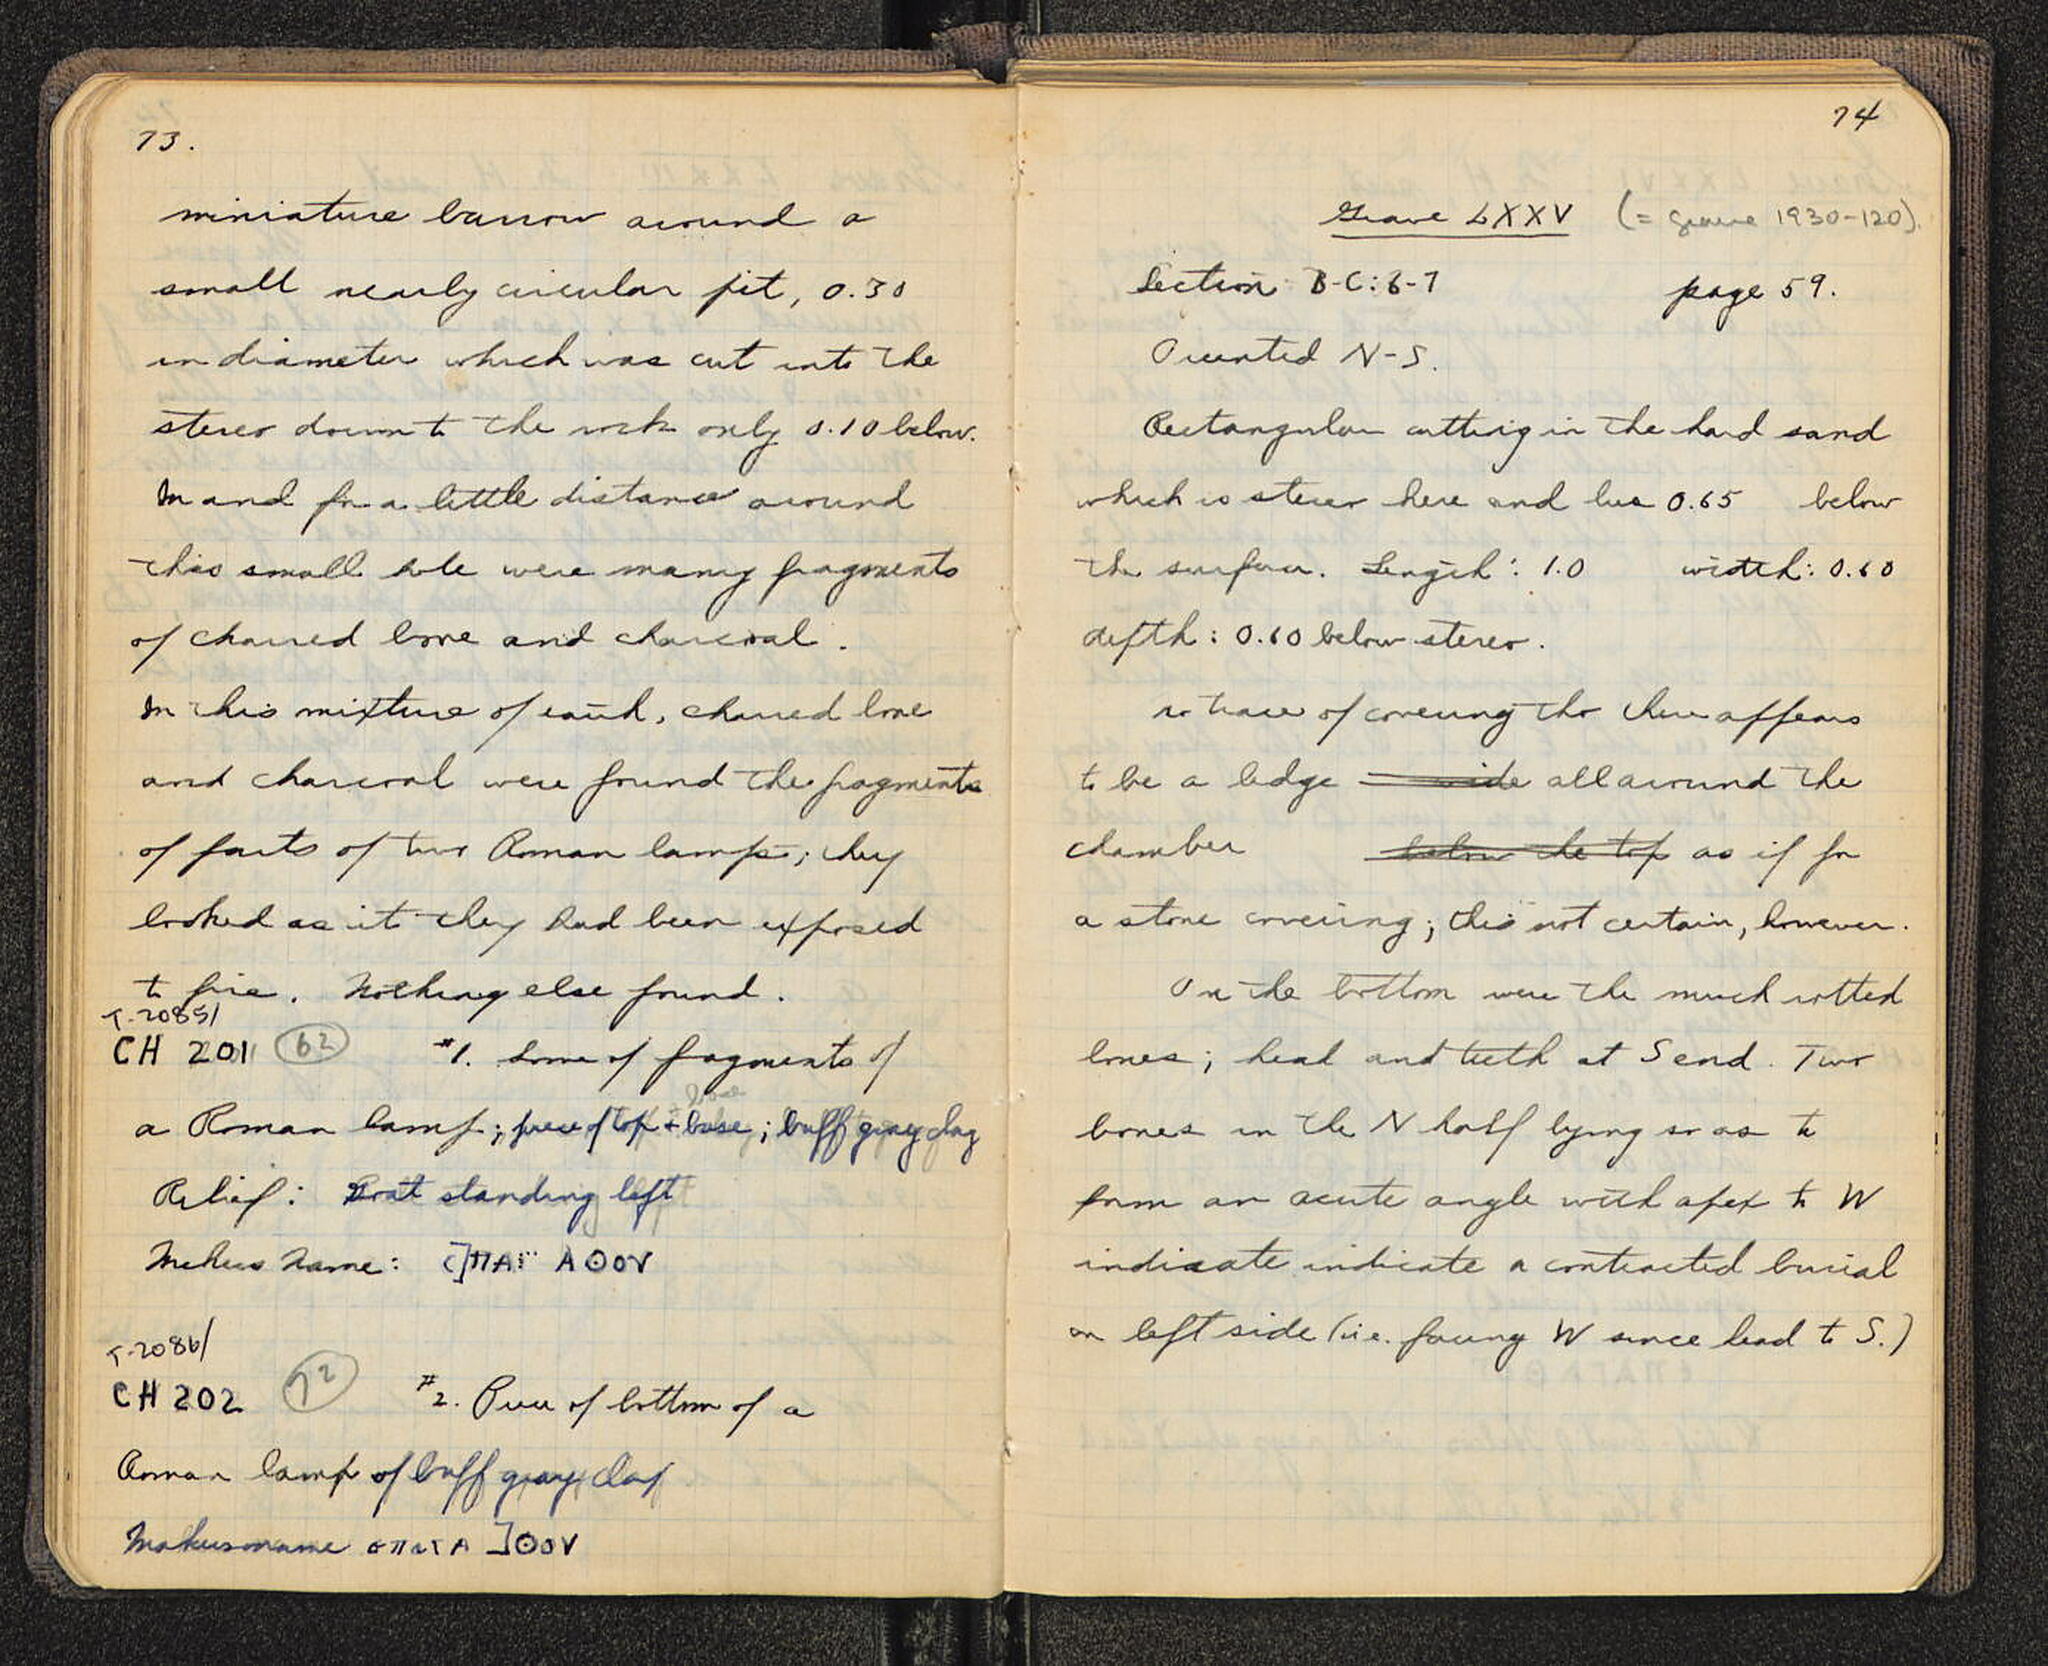 73.
miniature barrow around a
small nearly circular pit, 0.30
in diameter which was cut into the
stereo down to the rock only 0.10 below.
In and for a little distance around
this small hole were many fragments
of charred bone and charcoal.
In this mixture of earth, charred bone
and charcoal were found the fragments
of parts of two Roman lamps; they
looked as if they had been exposed
to fire. Nothing else found.
T-2085/
CH 201 62 #1. Some of fragments of
a Roman lamp; piece of top + base; buff gray clay
Relief: standing left
Makers Name: C]ΠΑ AΘΟV
T-2086/
CH 202 72 #2. Piece of bottom of a
Roman lamp of buff gray clay
Makers name A ]ΘΟV
74
Grave LXXV (= grave 1930-120).
Section B-C: 6-7 page 59.
Oriented N-S.
Rectangular cutting in the hard sand
which is stereo here and lies 0.65 below
the surface. Length: 1.0 width: 0.60
depth: 0.60 below stereo.
no trace of covering tho there appears
to be a ledge wide all around the
chamber below the top as if for
a stone covering; this not certain, however.
On the bottom were the much rotted
bones; head and teeth at S end. Two
bones in the N half lying so as to
form an acute angle with apex to W
indicate indicate a contracted burial
on left side (i.e. facing W since head to S.)